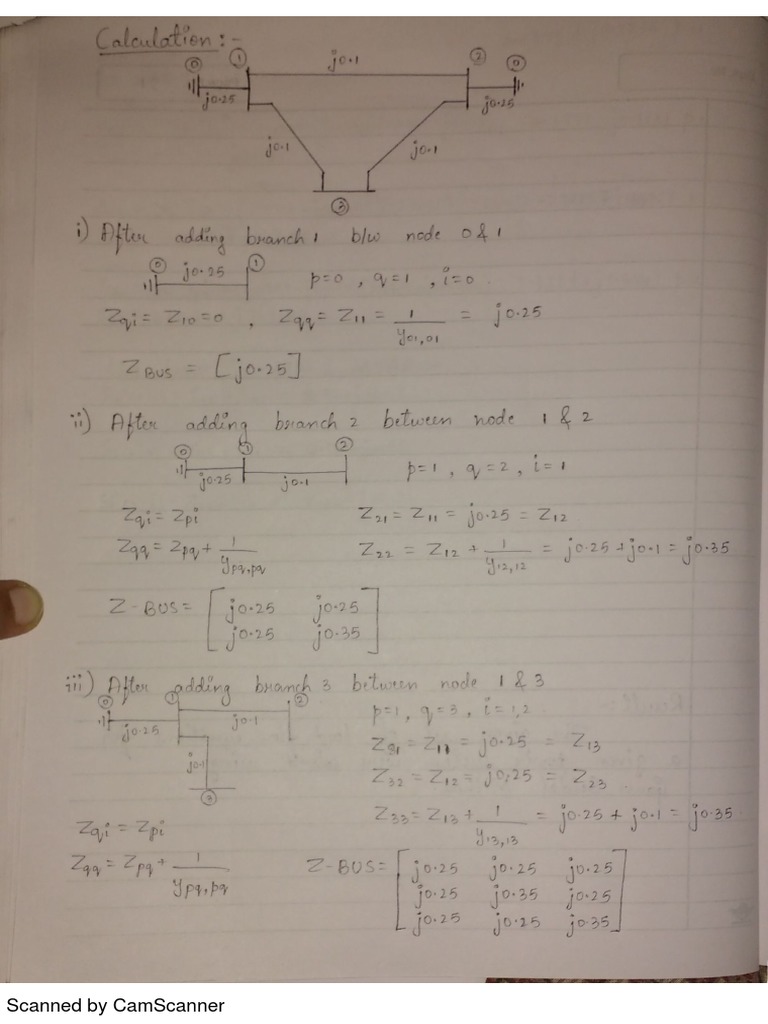 Calculation :-
① j0.1 ②
⓪ ⓪
j0.25 j0.25
j0.1 j0.1
③
i) After adding branch 1 b/w node 0 & 1
⓪ j0.25 ① p=0 , q=1 , i=0
Zqi = Z10 = 0 , Zqq = Z11 = 1/y01,01 = j0.25
Z BUS = [j0.25]
ii) After adding branch 2 between node 1 & 2
⓪ ① ②
j0.25 j0.1 p=1 , q=2 , i=1
Zqi = Zpi Z21 = Z11 = j0.25 = Z12
Zqq = Zpq + 1/ypq,pq Z22 = Z12 + 1/y12,12 = j0.25 + j0.1 = j0.35
Z-BUS = [ j0.25 j0.25
j0.25 j0.35 ]
iii) After adding branch 3 between node 1 & 3
⓪ ① ② p=1 , q=3 , i=1,2
j0.25 j0.1 Z31 = Z11 = j0.25 = Z13
j0.1 Z32 = Z12 = j0.25 = Z23
③ Z33 = Z13 + 1/y13,13 = j0.25 + j0.1 = j0.35
Zqi = Zpi
Zqq = Zpq + 1/ypq,pq
Z-BUS = [ j0.25 j0.25 j0.25
j0.25 j0.35 j0.25
j0.25 j0.25 j0.35 ]
Scanned by CamScanner